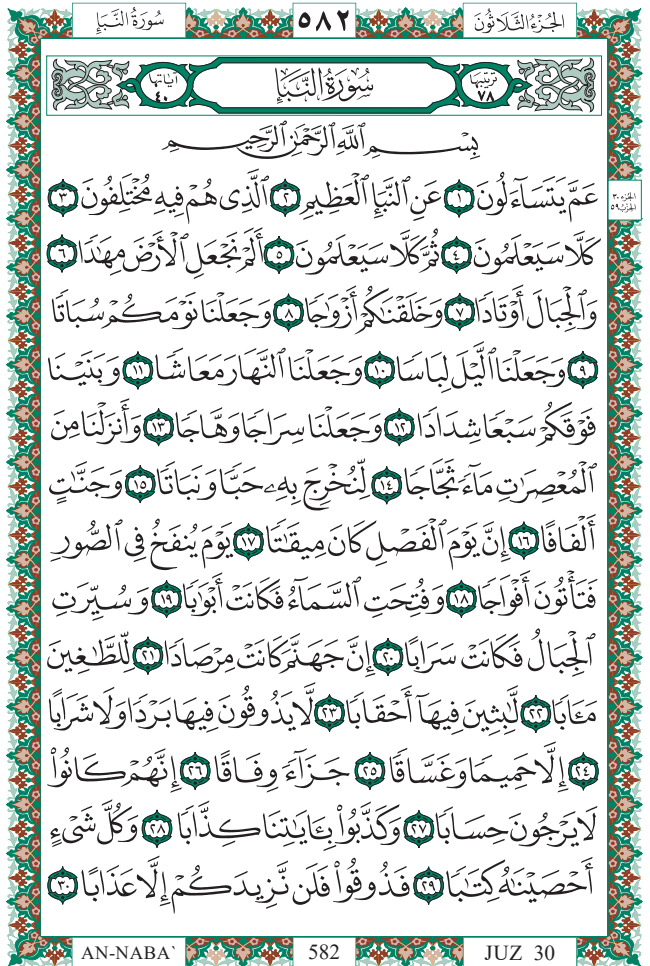 سُورَةُ النَّبَإِ ٥٨٢ الجُزْءُ الثَّلَاثُونَ
آيَاتُهَا ٤٠ سُورَةُ النَّبَإِ تَرْتِيبُهَا ٧٨
بِسْمِ ٱللَّهِ ٱلرَّحْمَٰنِ ٱلرَّحِيمِ
عَمَّ يَتَسَآءَلُونَ ١ عَنِ ٱلنَّبَإِ ٱلْعَظِيمِ ٢ ٱلَّذِى هُمْ فِيهِ مُخْتَلِفُونَ ٣
الجزء ٣٠
الحزب ٥٩
كَلَّا سَيَعْلَمُونَ ٤ ثُمَّ كَلَّا سَيَعْلَمُونَ ٥ أَلَمْ نَجْعَلِ ٱلْأَرْضَ مِهَٰدًا ٦
وَٱلْجِبَالَ أَوْتَادًا ٧ وَخَلَقْنَٰكُمْ أَزْوَٰجًا ٨ وَجَعَلْنَا نَوْمَكُمْ سُبَاتًا
٩ وَجَعَلْنَا ٱلَّيْلَ لِبَاسًا ١٠ وَجَعَلْنَا ٱلنَّهَارَ مَعَاشًا ١١ وَبَنَيْنَا
فَوْقَكُمْ سَبْعًا شِدَادًا ١٢ وَجَعَلْنَا سِرَاجًا وَهَّاجًا ١٣ وَأَنزَلْنَا مِنَ
ٱلْمُعْصِرَٰتِ مَآءً ثَجَّاجًا ١٤ لِّنُخْرِجَ بِهِۦ حَبًّا وَنَبَاتًا ١٥ وَجَنَّٰتٍ
أَلْفَافًا ١٦ إِنَّ يَوْمَ ٱلْفَصْلِ كَانَ مِيقَٰتًا ١٧ يَوْمَ يُنفَخُ فِى ٱلصُّورِ
فَتَأْتُونَ أَفْوَاجًا ١٨ وَفُتِحَتِ ٱلسَّمَآءُ فَكَانَتْ أَبْوَٰبًا ١٩ وَسُيِّرَتِ
ٱلْجِبَالُ فَكَانَتْ سَرَابًا ٢٠ إِنَّ جَهَنَّمَ كَانَتْ مِرْصَادًا ٢١ لِّلطَّٰغِينَ
مَـَٔابًا ٢٢ لَّٰبِثِينَ فِيهَآ أَحْقَابًا ٢٣ لَّا يَذُوقُونَ فِيهَا بَرْدًا وَلَا شَرَابًا
٢٤ إِلَّا حَمِيمًا وَغَسَّاقًا ٢٥ جَزَآءً وِفَاقًا ٢٦ إِنَّهُمْ كَانُوا۟
لَا يَرْجُونَ حِسَابًا ٢٧ وَكَذَّبُوا۟ بِـَٔايَٰتِنَا كِذَّابًا ٢٨ وَكُلَّ شَىْءٍ
أَحْصَيْنَٰهُ كِتَٰبًا ٢٩ فَذُوقُوا۟ فَلَن نَّزِيدَكُمْ إِلَّا عَذَابًا ٣٠
AN-NABA` 582 JUZ 30